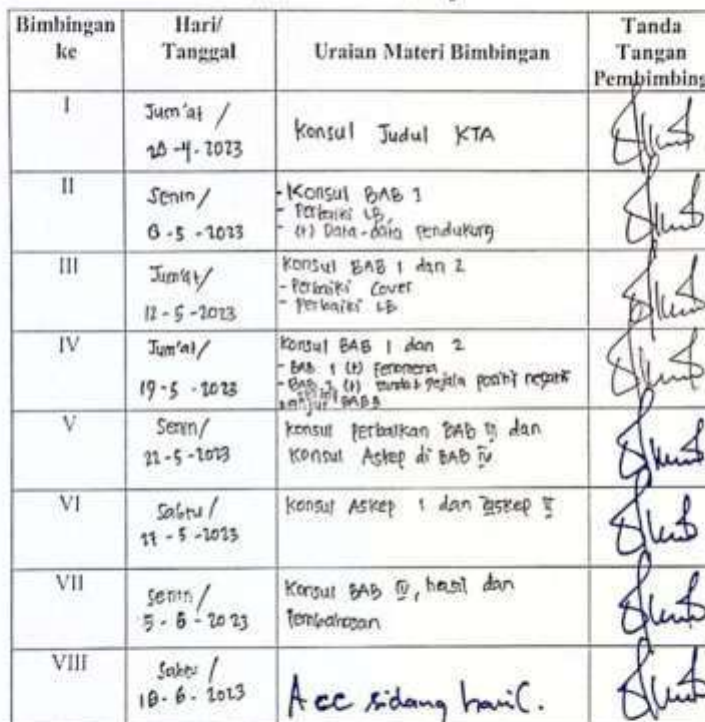 Bimbingan ke
Hari/ Tanggal
Uraian Materi Bimbingan
Tanda Tangan Pembimbing
I
Jum'at /
-4-2023
Konsul Judul KTA
II
Senin /
-5-2023
- Konsul BAB 1
- Perbaiki LB,
- (+) Data-data pendukung
III
Jum'at/
12-5-2023
Konsul BAB 1 dan 2
- Perbaiki Cover
- Perbaiki LB
IV
Jum'at/
19-5-2023
Konsul BAB 1 dan 2
- BAB 1 (+) Fenomena
- BAB 2 (+) gejala positif negatif
Lanjut BAB 3
V
Senin/
22-5-2023
Konsul Perbaikan BAB III dan
Konsul Askep di BAB IV
VI
Sabtu /
27-5-2023
Konsul Askep 1 dan askep II
VII
Senin /
5-6-2023
Konsul BAB IV, hasil dan
Pembahasan
VIII
Sabtu /
10-6-2023
Acc sidang hasil.